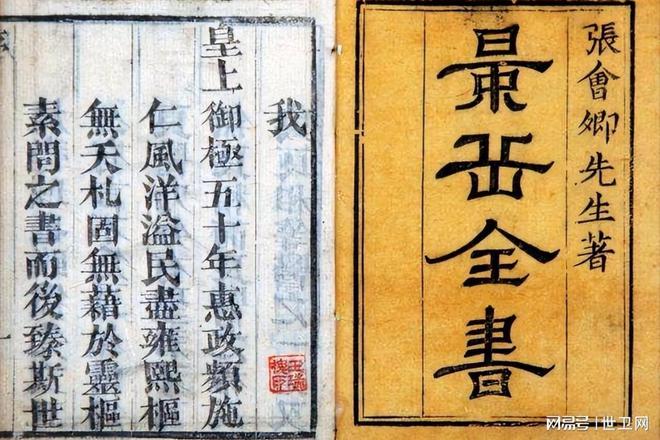 張會卿先生著
景岳全書
我
皇上御極五十年惠政頻施
仁風洋溢民盡雍熙樞
無夭札固無藉於靈樞
素問之書而後臻斯世
網易号 | 世卫网